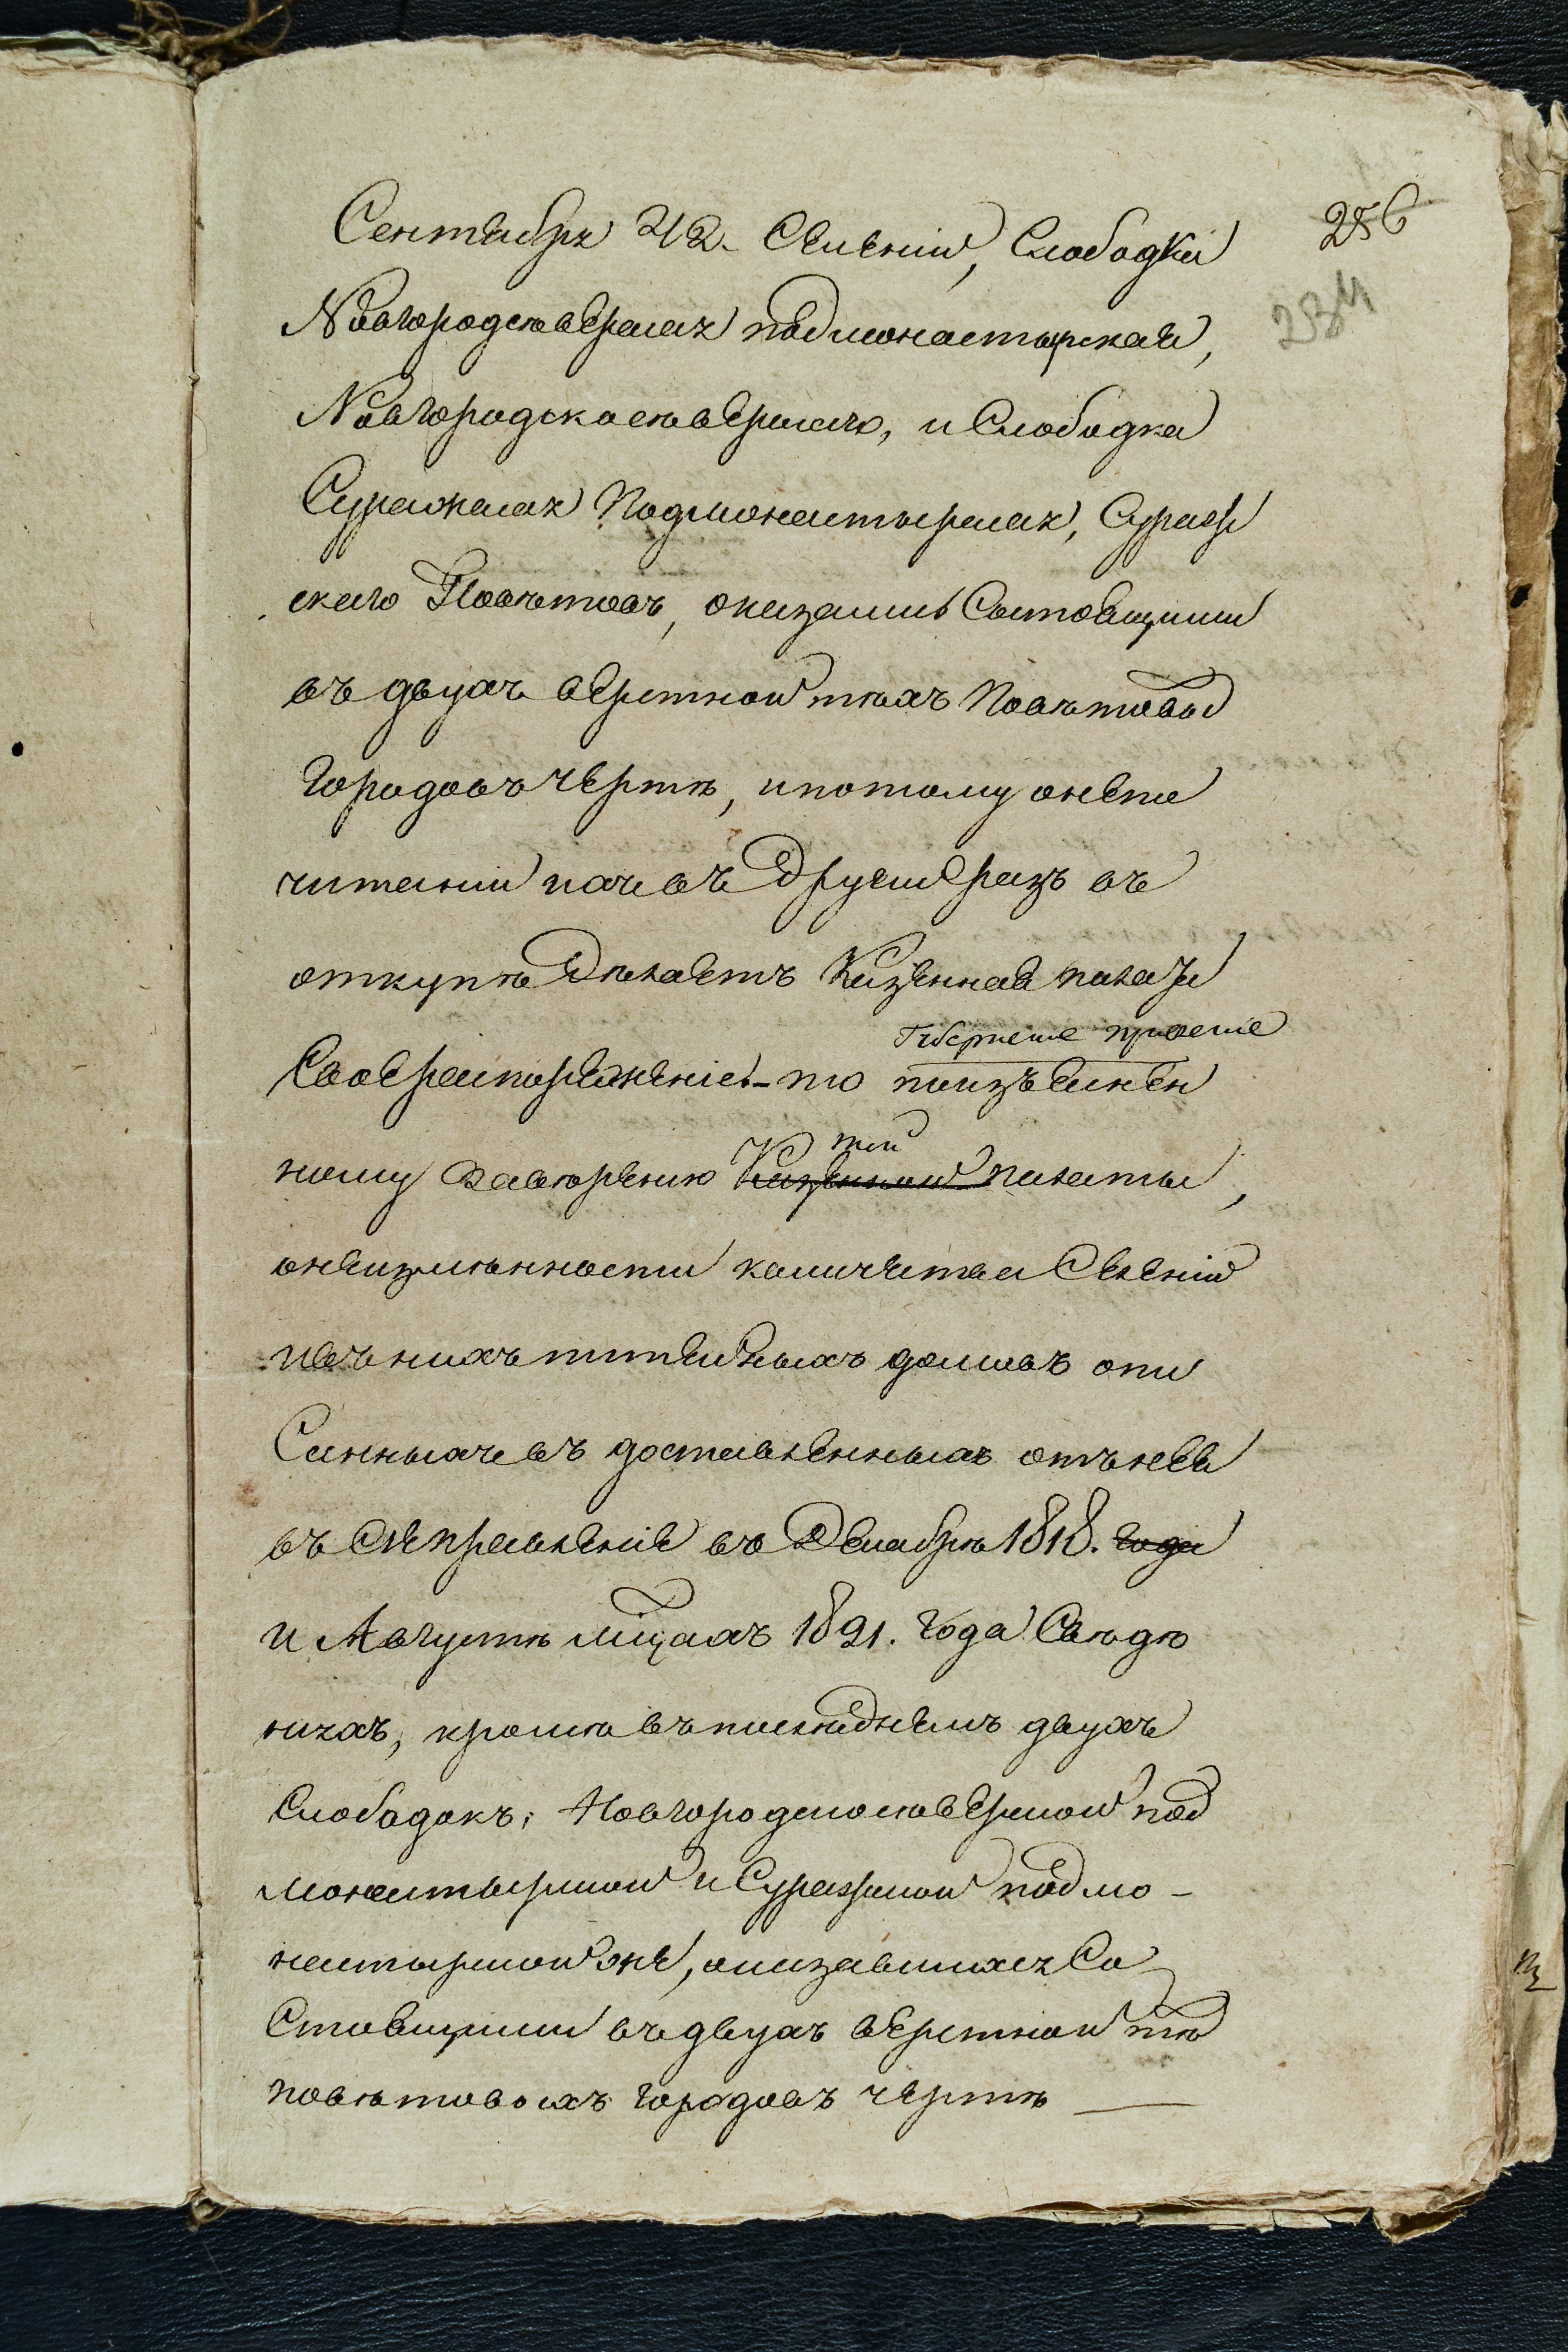 Сентября 22. Селеній, Слободка
Новгородсѣверская подмонастырская,
Новгородскосѣверскаго, и Слободка
Суражская Подмонастырская, Сураж
скаго Повѣтовъ, оказались Состоящими
въ двухъ верстной тѣхъ Повѣтовых
городовъ чертѣ, и потому о непо
читаніи ихъ въ другой разъ въ
откупѣ дѣлаетъ Казенная палата
Свое распоряженіе. – то поизъяснен
Губернское правленіе
ному завѣренію Казенной палаты,
той
о неизмѣнности количества Селеній
и въ нихъ питейныхъ домовъ опи
Санныхъ въ доставленныхъ отъ нее
въ сіе правленіе въ Декабрѣ 1818. года
и Августѣ мѣсцахъ 1821. года Свѣдѣ
ніяхъ, кромѣ въ последнемъ двухъ
Слободокъ, Новгородскосѣверской под
монастырской и Суражской подмо-
настырской же, оказавшихся Со
Стоящими въ двухъ верстной тѣ
повѣтовыхъ городовъ чертѣ
256
234